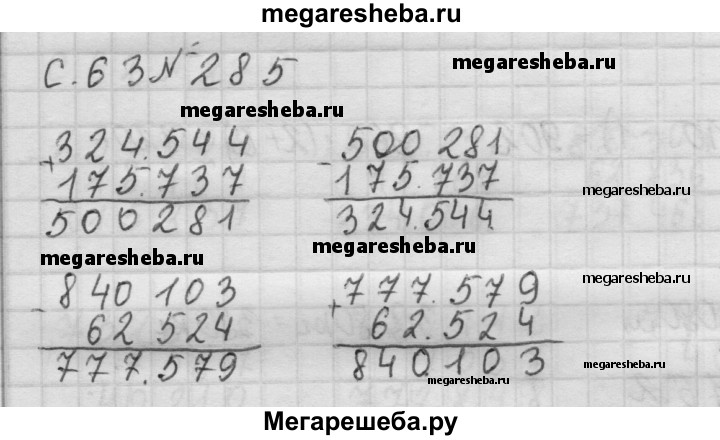 megaresheba.ru
С. 63 № 285
megaresheba.ru
megaresheba.ru
+ 324.544
175.737
500281
- 500 281
175.737
324.544
megaresheba.ru
megaresheba.ru
megaresheba.ru
- 840 103
62 524
777.579
+ 777.579
62.524
840.103
megaresheba.ru
megaresheba.ru
megaresheba.ru
Мегарешеба.ру